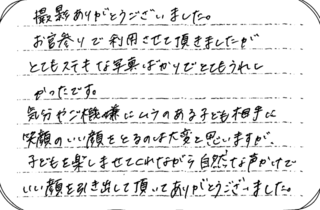 撮影ありがとうございました。
お宮参りで利用させて頂きましたが
とてもステキな写真ばかりでとてもうれし
かったです。
気分やご機嫌にムラのある子ども相手に
笑顔のいい顔をとるのは大変と思いますが、
子どもを楽しませてくれながら自然な声かけで
いい顔を引き出して頂いてありがとうございました。